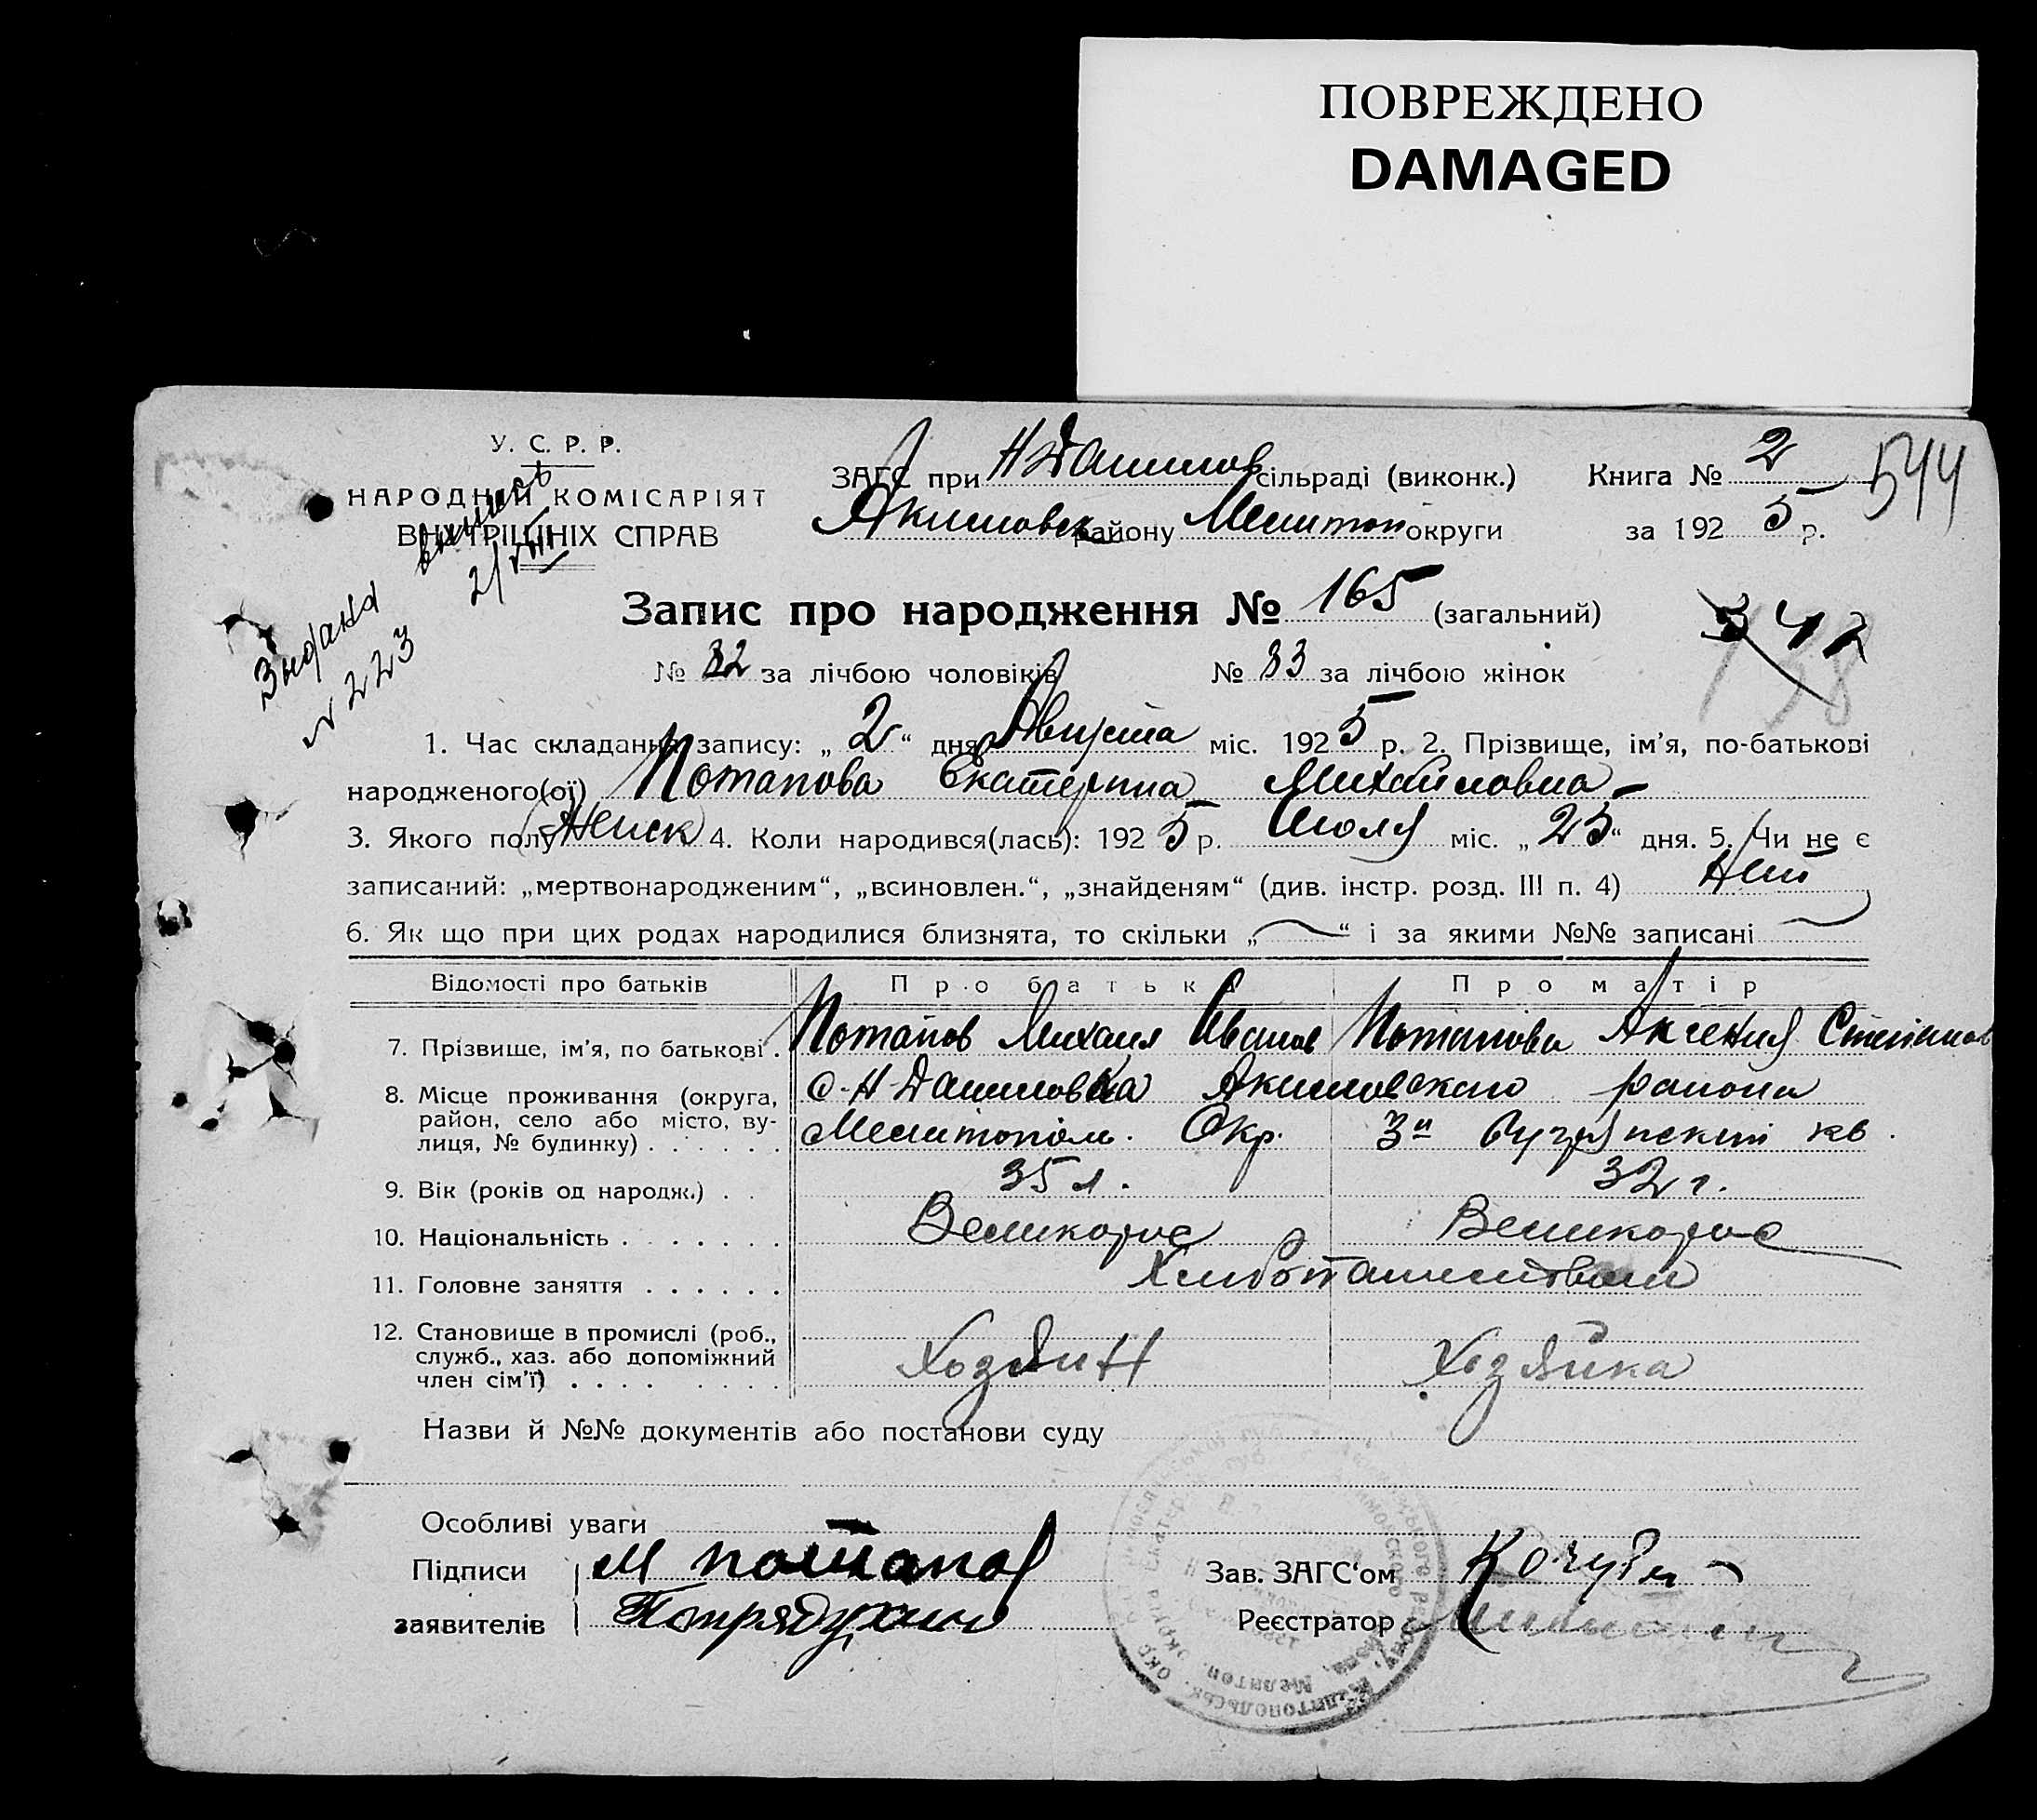 ПОВРЕЖДЕНО
DAMAGED
У. С. Р. Р.
НАРОДНІЙ КОМІСАРІЯТ
ВНУТРІШНІХ СПРАВ
2/VIII
№ 223
ЗАГС при Н Данилов сільраді (виконк.) Книга № 2
544
Акимовск району Мелитоп округи за 1925 р.
Запис про народження № 165 (загальний)
347
№ 82 за лічбою чоловіків № 83 за лічбою жінок
1. Час складання запису: „ 2 “ дня Августа міс. 1925 р. 2. Прізвище, ім’я, по-батькові
народженого(ої) Потапова Екатерина Михайловна
3. Якого полу Женск 4. Коли народився(лась): 1925 р. Июля міс. „ 25 “ дня. 5. Чи не є
записаний: „мертвонародженим“, „всиновлен.“, „знайденям“ (див. інстр. розд. III п. 4) Нет
6. Як що при цих родах народилися близнята, то скільки „ “ і за якими №№ записані
Відомості про батьків Про батька Про матір
7. Прізвище, ім’я, по батькові . Потапов Михаил Иванов Потапова Аксения Степанов
8. Місце проживання (округа, район, село або місто, вулиця, № будинку) с. Н-Даниловка Акимовского района
Мелитополь. Окр. 3й кв.
9. Вік (років од народж.) . . 35 л. 32 г.
10. Національність . Великорос Великорос
11. Головне заняття . Хлебопашество
12. Становище в промислі (роб., служб., хаз. або допоміжний член сім’ї) . Хозяин Хозяйка
Назви й №№ документів або постанови суду
Особливі уваги
Підписи М Потапов Зав. ЗАГС‘ом
заявителів Реєстратор